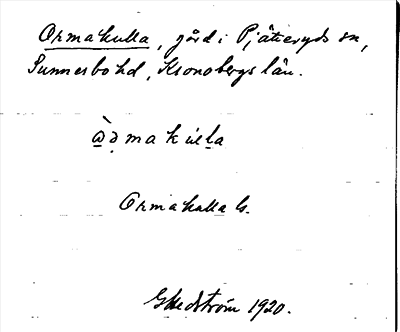 Ormakulla, gård i Pjätteryds sn,
Sunnerbo hd, Kronobergs län.
Ormakulla Ls.
G Hedström 1920.